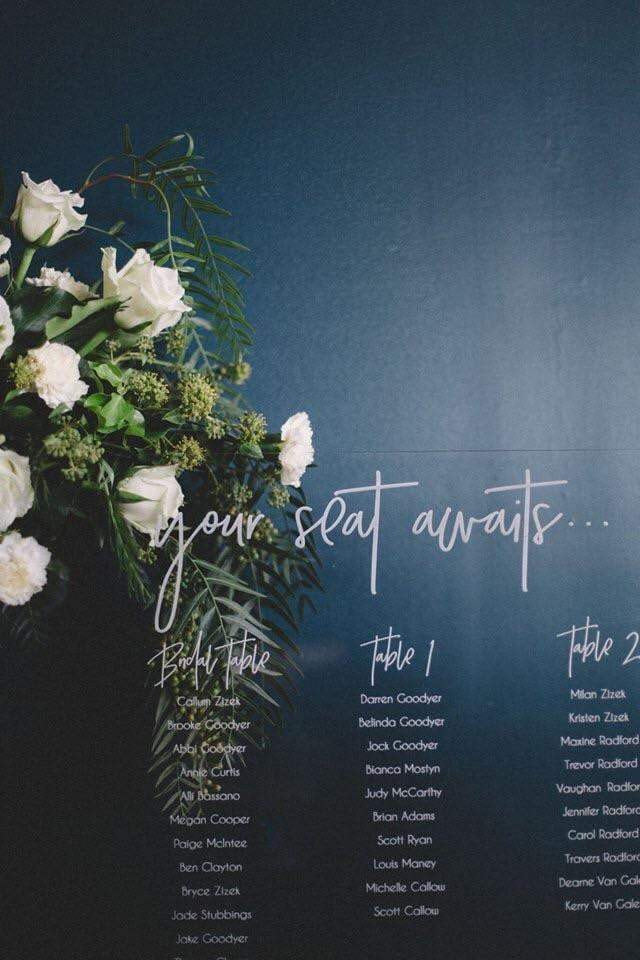 your seat awaits...
Bridal Table
Callum Zizek
Brooke Goodyer
Abbi Goodyer
Annie Curtis
Alli Bassano
Megan Cooper
Paige McIntee
Ben Clayton
Bryce Zizek
Jade Stubbings
Jake Goodyer
Table 1
Darren Goodyer
Belinda Goodyer
Jock Goodyer
Bianca Mostyn
Judy McCarthy
Brian Adams
Scott Ryan
Louis Maney
Michelle Callow
Scott Callow
Table 2
Milan Zizek
Kristen Zizek
Maxine Radford
Trevor Radford
Vaughan Radfor
Jennifer Radford
Carol Radford
Travers Radford
Dearne Van Gale
Kerry Van Gale